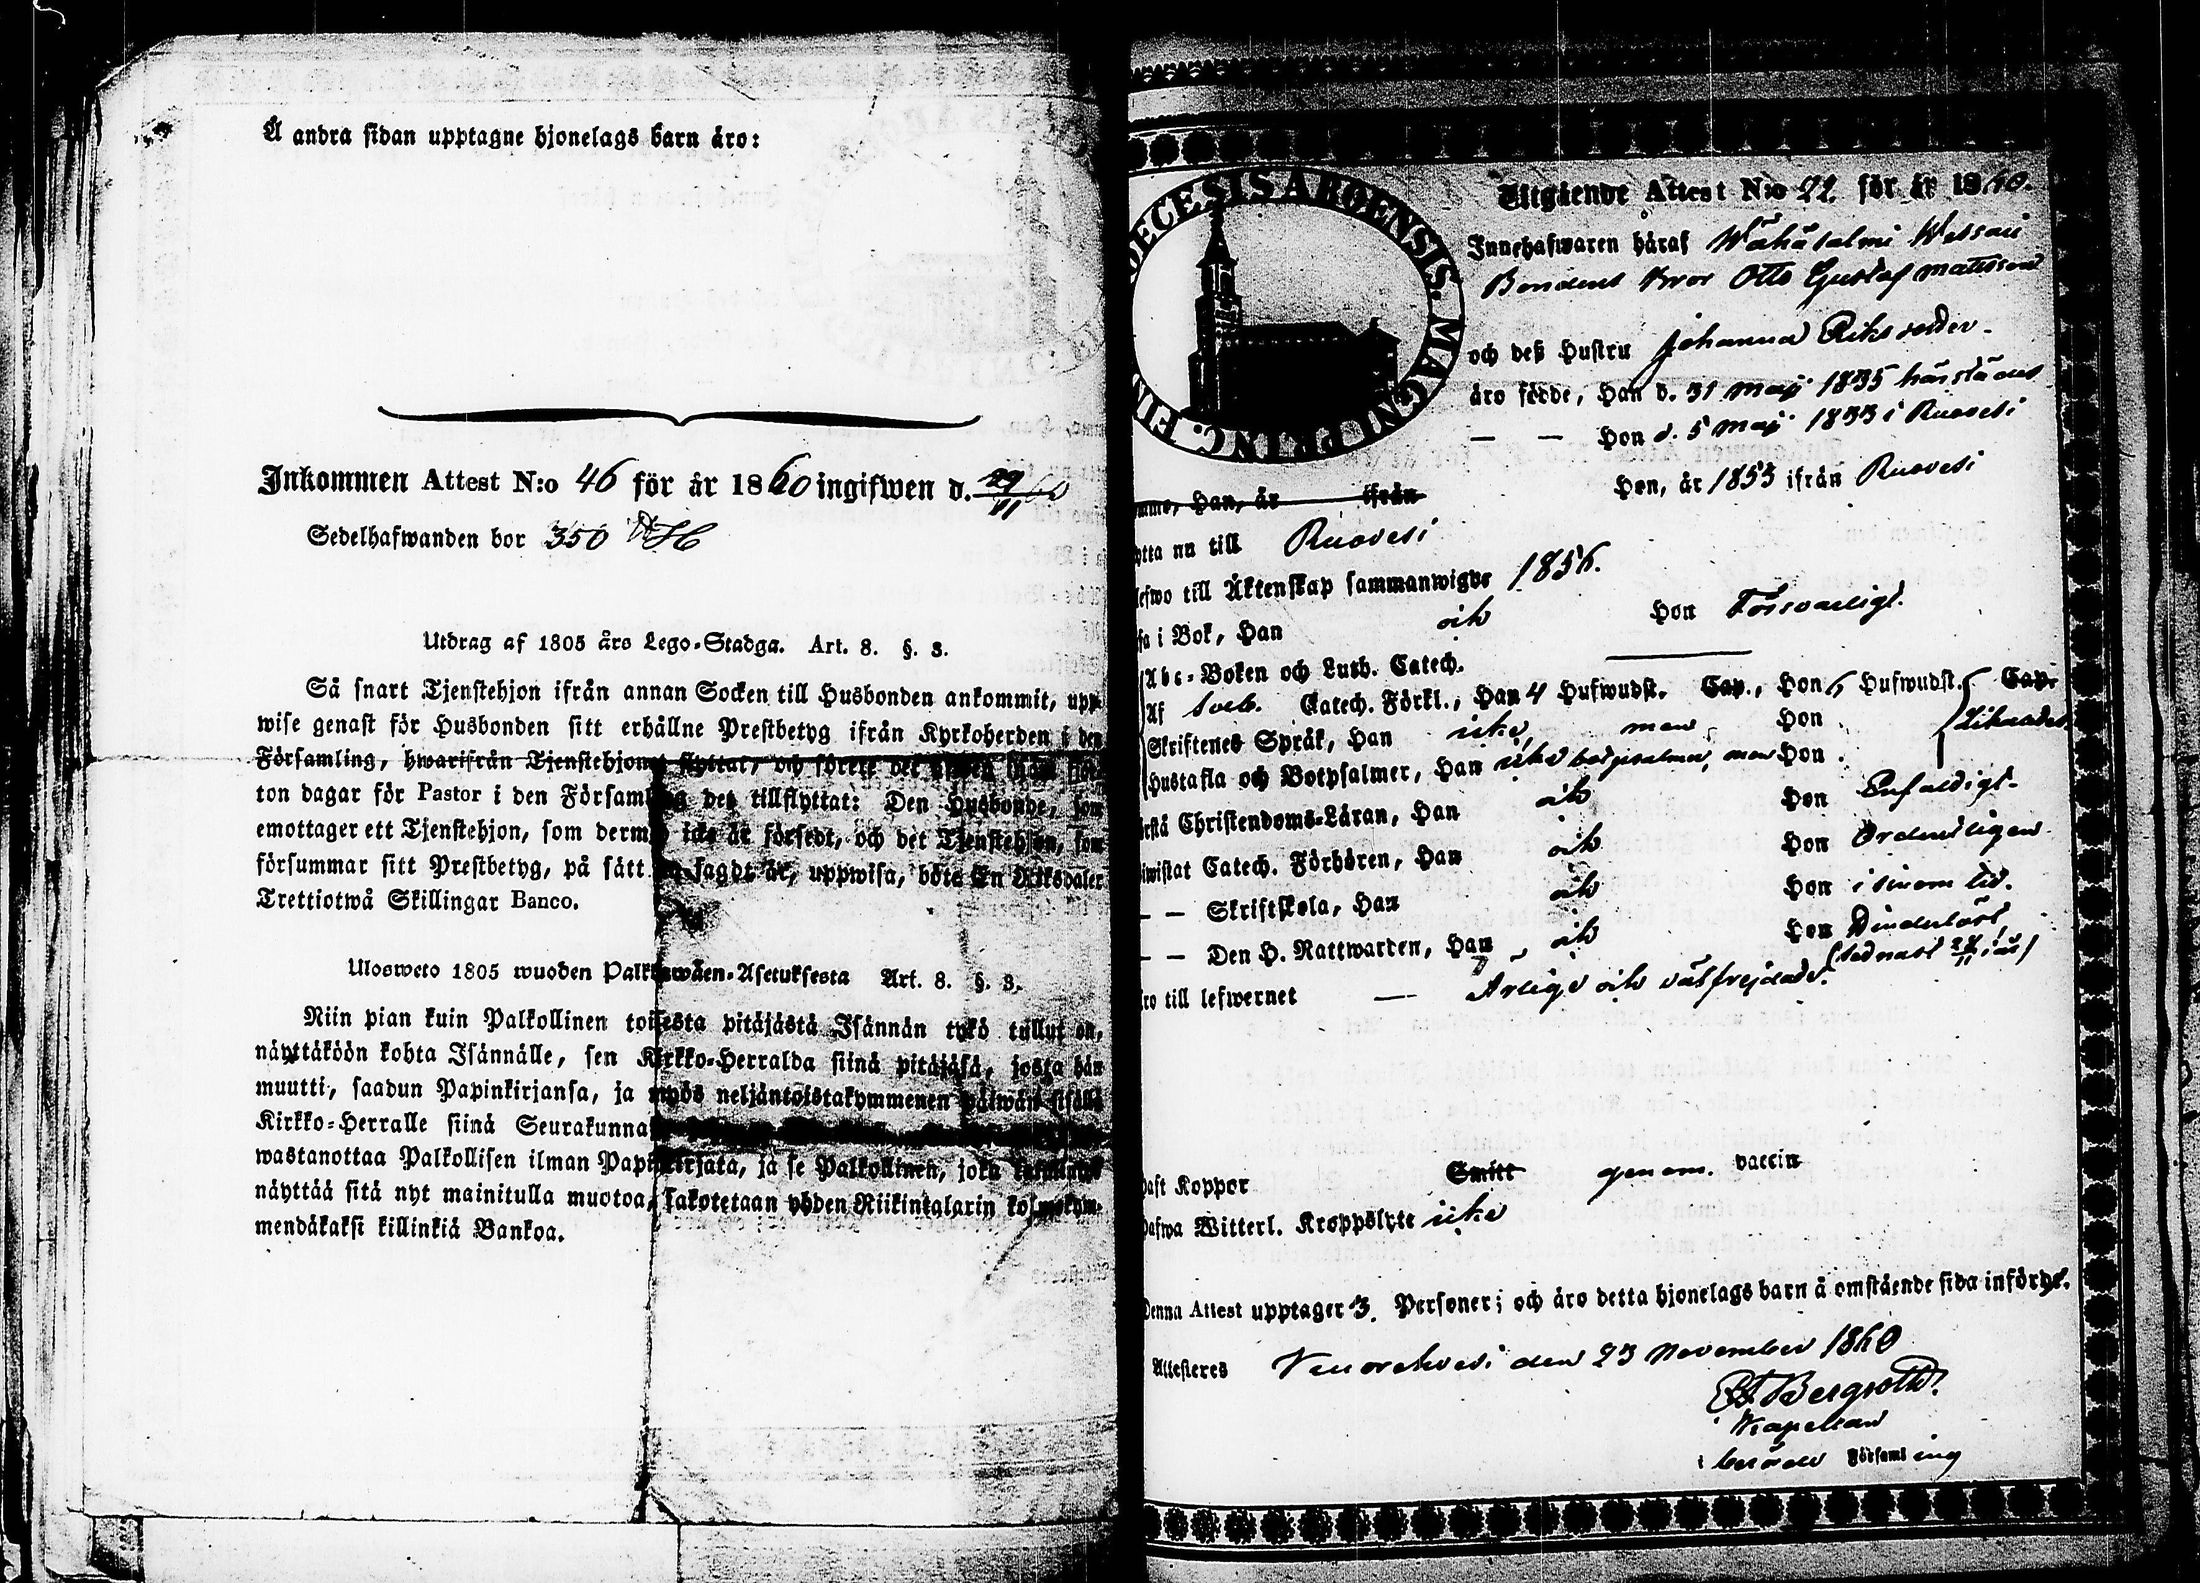 Å andra sidan upptagne hjonelags barn äro:
Inkommen Attest N:o 46 för år 1860 ingifwen d. 29/11 60
Sedelhafwanden bor 350
Utdrag af 1805 års Lego-Stadga. Art. 8. §. 3.
Så snart Tjenstehjon ifrån annan Socken till Husbonden ankommit, upp-
wise genast för Husbonden sitt erhållne Prestbetyg ifrån Kyrkoherden i den
Församling, hwarifrån Tjenstehjonet flyttat, och förete det inom fjor-
ton dagar för Pastor i den Församling det tillflyttat: Den Husbonde, som
emottager ett Tjenstehjon, som dermed icke är försedt, och det Tjenstehjon, som
försummar sitt Prestbetyg, på sätt sagdt är, uppwisa, böte En Riksdaler
Trettiotwå Skillingar Banco.
Ulosweto 1805 wuoden Palkkawäen-Asetuksesta Art. 8. §. 3.
Niin pian kuin Palkollinen toisesta pitäjästä Isännän tykö tullut on,
näyttäköön kohta Isännälle, sen Kirkko-Herralda siinä pitäjäsä, josta hän
muutti, saadun Papinkirjansa, ja myös neljäntoistakymmenen päiwän sisällä
Kirkko-Herralle siinä Seurakunnas
wastanottaa Palkollisen ilman Papinkirjata, ja se Palkollinen, joka
näyttää sitä nyt mainitulla muotoa, sakotetaan yhden Riikintalarin kolmekym-
mendäkaksi killinkiä Bankoa.
DIOECESIS ABOENSIS. MAGNI PRINC. FIN
Utgående Attest N:o 22 för år 1860.
Innehafwaren häraf Wähäsalmi
Bondens Otto Gustaf Mattsson
och deß Hustru Johanna Eriksdotter
äro födde, Han d. 31 Maji 1835 härstädes
— — Hon d. 5 Maji 1833 i Ruovesi
omne, Han, år ifrån Hon, år 1853 ifrån Ruovesi
ytta nu till Ruovesi
lefwo till Äktenskap sammanwigde 1856.
sa i Bok, Han och Hon Försvarligt.
Abc-Boken och Luth. Catech.
Af Sveb. Catech. Förkl., Han 4 Hufwudst. Cap., Hon 6 Hufwudst. Cap.
Skriftenes Språk, Han icke, men Hon Likaledes
Hustafla och Botpsalmer, Han icke botpsalmer, men Hon
rstå Christendoms-Läran, Han och Hon Enfaldigt.
iwistat Catech. Förhören, Han och Hon Ordentligen
— — Skriftskola, Han och Hon i sinom tid.
— — Den H. Nattwarden, Han och Hon Hinderlöst,
(sednast i år)
ro till lefwernet — Ärlige och välfrejdade.
haft Koppor Smitt genom vaccin
Hafwa Witterl. Kroppslyte icke
Denna Attest upptager 3. Personer; och äro detta hjonelags barn å omstående sida införde.
Attesteres Keuru den 23 November 1860
Bergroth.
Kapellan
i berörde Församling